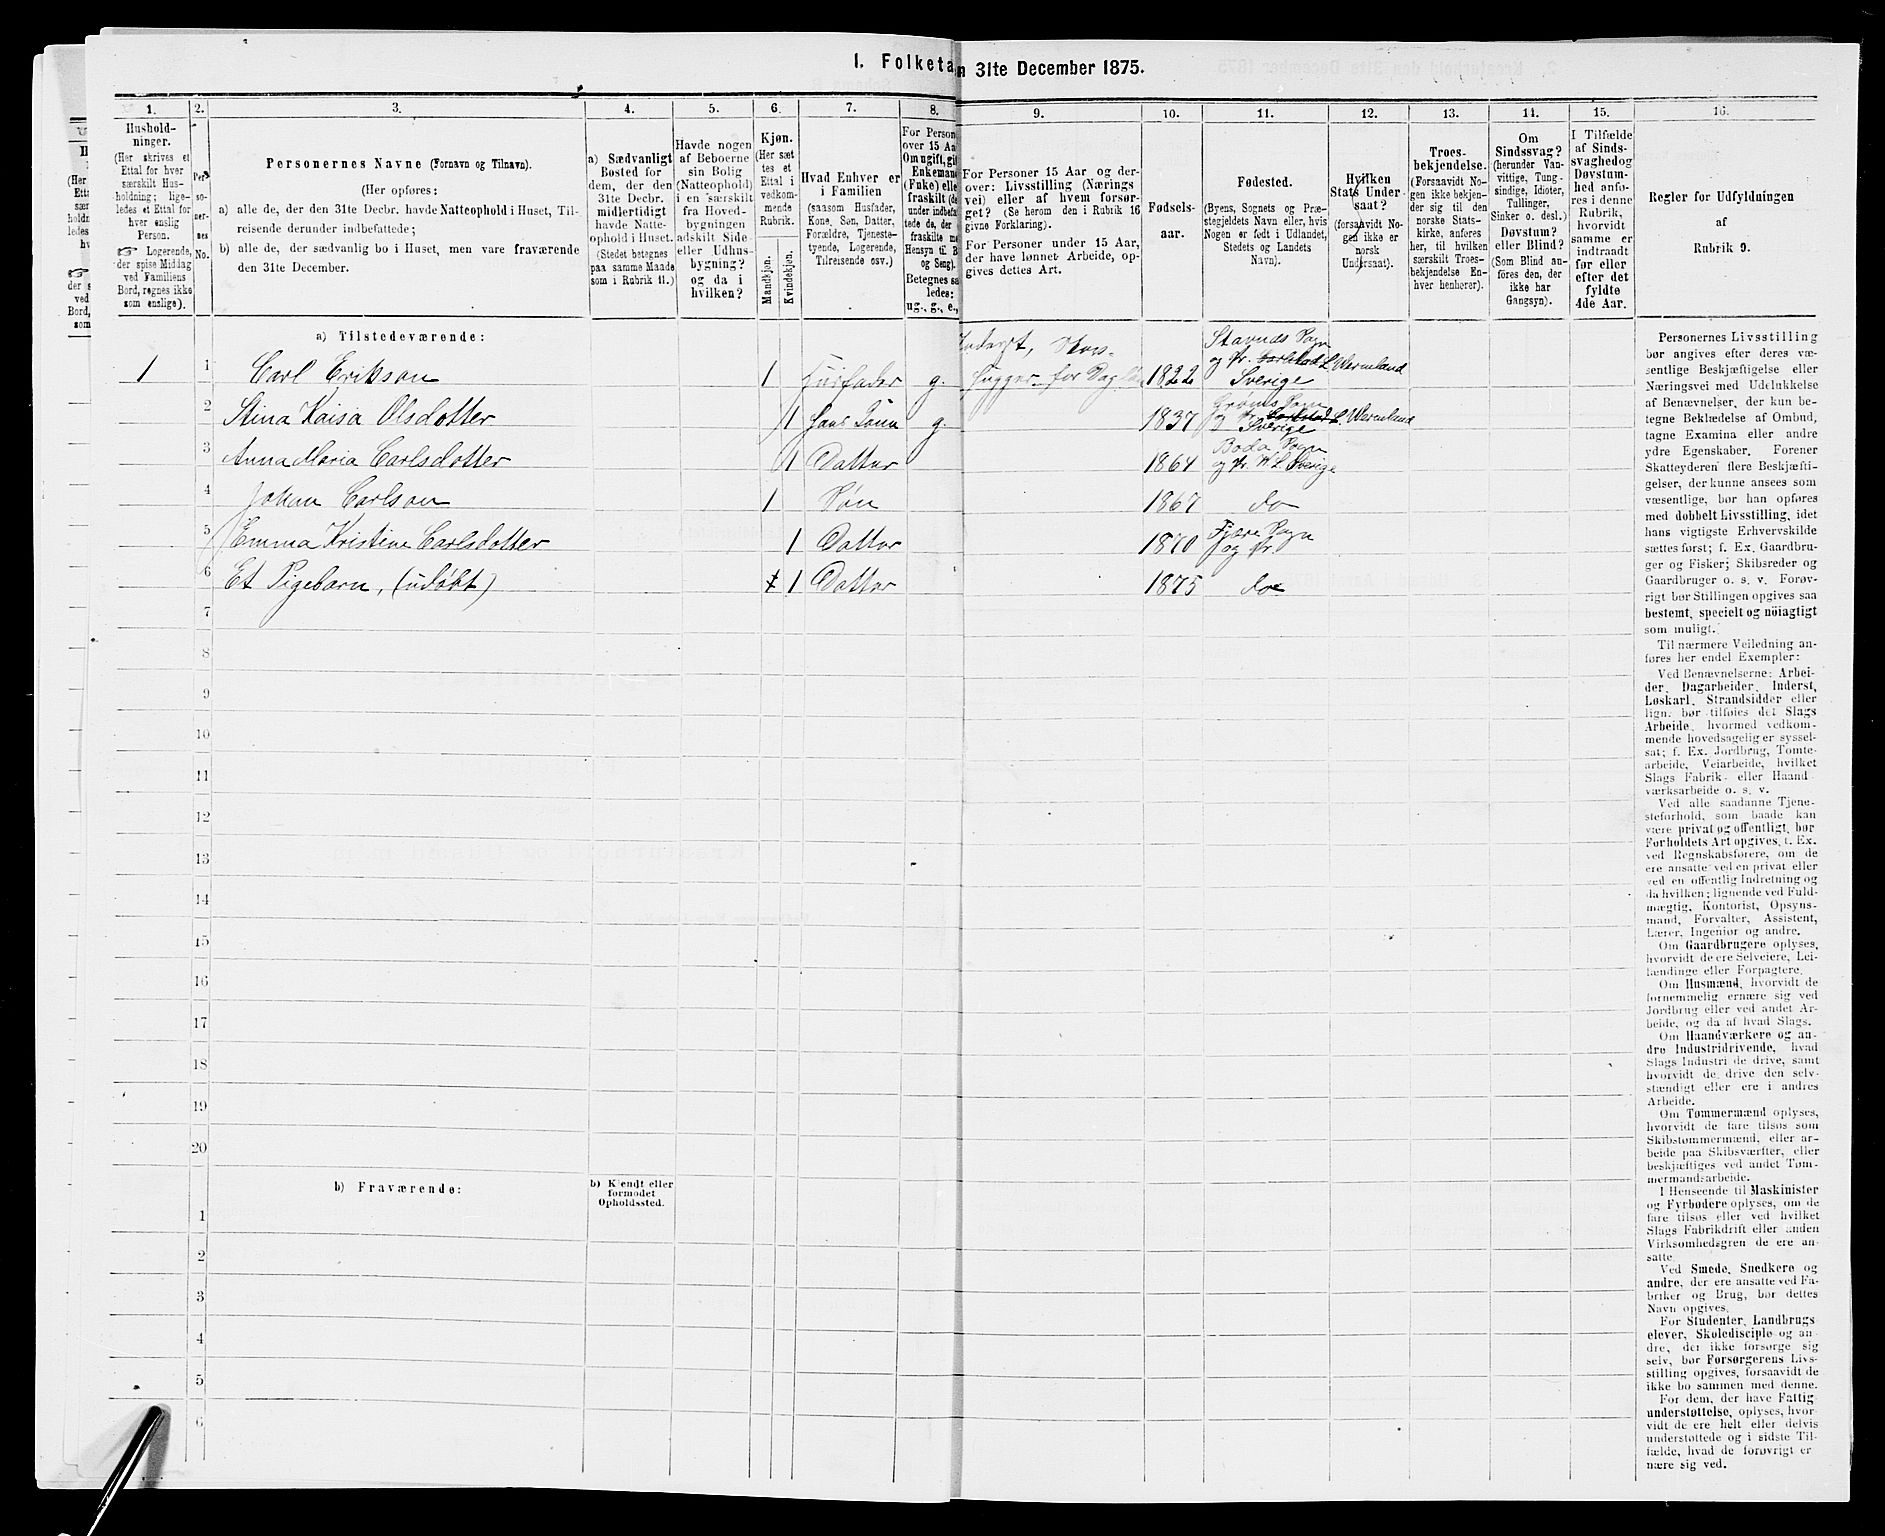 1. Folketa
n 31te December 1875.
1.
2.
3.
4.
5.
6.
7.
8.
9.
10.
11.
12.
13.
14.
15.
16.
Hushold-
ninger.
(Her skrives et
Ettal for hver
særskilt Hus-
holdning; lige-
ledes et Ettal for
hver enslig
Person.
☞ Logerende,
der spise Middag
ved Familiens
Bord, regnes ikke
som enslige).
Per-
so-
ner-
nes
No.
Personernes Navne (Fornavn og Tilnavn).
(Her opføres:
a) alle de, der den 31te Decbr. havde Natteophold i Huset, Til-
reisende derunder indbefattede;
b) alle de, der sædvanlig bo i Huset, men vare fraværende
den 31te December.
a) Sædvanligt
Bosted for
dem, der den
31te Decbr.
midlertidigt
havde Natte-
ophold i Huset.
(Stedet betegnes
paa samme Maade
som i Rubrik 11.)
Havde nogen
af Beboerne
sin Bolig
(Natteophold)
i en særskilt
fra Hoved-
bygningen
adskilt Side-
eller Udhus-
bygning?
og da i
hvilken?
Kjøn.
(Her sæt-
tes et
Ettal i
vedkom-
mende
Rubrik.
Mandkjøn.
Kvindekjøn.
Hvad Enhver er
i Familien
(saasom Husfader,
Kone, Søn, Datter,
Forældre, Tjeneste-
tyende, Logerende,
Tilreisende osv.)
For Person
over 15 Aa
Om ugift, gif
Enkemand
(Enke) elle
fraskilt (de
under indbefat
tede de, der
fraskilte me
Hensyn til B
og Seng).
Betegnes sa
ledes:
ug., g., e.,
For Personer 15 Aar og der-
over: Livsstilling (Nærings
vei) eller af hvem forsør-
get? (Se herom den i Rubrik 16
givne Forklaring).
For Personer under 15 Aar,
der have lønnet Arbeide, op-
gives dettes Art.
Fødsels-
aar.
Fødested.
(Byens, Sognets og Præ-
stegjeldets Navn eller, hvis
Nogen er født i Udlandet,
Stedets og Landets
Navn).
Hvilken
Stats Under-
saat?
(forsaavidt No-
gen ikke er
norsk
Undersaat).
Troes-
bekjendelse.
(Forsaavidt No-
gen ikke bekjen-
der sig til den
norske Stats-
kirke, anføres
her, til hvilken
særskilt Troes-
bekjendelse En-
hver henhører).
Om
Sindssvag?
(herunder Van-
vittige, Tung-
sindige, Idioter,
Tullinger,
Sinker o. desl.)
Døvstum?
eller Blind?
(Som Blind an-
føres den, der
ikke har
Gangsyn).
I Tilfælde
af Sinds-
svaghed og
Døvstum-
hed anfø-
res i denne
Rubrik,
hvorvidt
samme er
indtraadt
før eller
efter det
fyldte
4de Aar.
Regler for Udfyldningen
af
Rubrik 9.
a) Tilstedeværende:
1 1 Carl Erikson 1 Husfader g. Inderst, Skov-
hugger for Dagløn 1822 Stavnäs Sogn
og Pr. Carlstad L. Wermland
Sverige
2 Stina Kaisa Olsdotter 1 Hans Kone g. 1837 Grøms Sogn
og Pr. Carlstad L. Wermland
Sverige
3 Anna Maria Carlsdotter 1 Datter 1864 Boda Sogn
og Pr. W. L. Sverige
4 Johan Carlson 1 Søn 1867 do
5 Emma Kristine Carlsdotter 1 Datter 1870 Fjære Sogn
og Pr.
6 Et Pigebarn, (udøbt) 1 1 Datter 1875 do
7
8
9
10
11
12
13
14
15
16
17
18
19
20
b) Fraværende:
b) Kjendt eller
formodet
Opholdssted.
1
2
3
4
5
6
Personernes Livsstilling
bør angives efter deres væ-
sentlige Beskjæftigelse eller
Næringsvei med Udelukkelse
af Benævnelser, der kun be-
tegne Beklædelse af Ombud,
tagne Examina eller andre
ydre Egenskaber. Forener
Skatteyderen flere Beskjæfti-
gelser, der kunne ansees som
væsentlige, bør han opføres
med dobbelt Livsstilling, idet
hans vigtigste Erhvervskilde
sættes først; f. Ex. Gaardbru-
ger og Fisker; Skibsreder og
Gaardbruger o. s. v. Forøv-
rigt bør Stillingen opgives saa
bestemt, specielt og nöiagtigt
som muligt.
Til nærmere Veiledning an-
føres her endel Exempler:
Ved Benævnelserne: Arbei-
der, Dagarbeider, Inderst,
Løskarl, Strandsidder eller
lign. bør tilføies det Slags
Arbeide, hvormed vedkom-
mende hovedsagelig er syssel-
sat; f. Ex. Jordbrug, Tomte-
arbeide, Veiarbeide, hvilket
Slags Fabrik- eller Haand-
værksarbeide o. s. v.
Ved alle saadanne Tjene-
steforhold, som baade kan
være privat og offentligt, bør
Forholdets Art opgives, f. Ex.
ved Regnskabsførere, om de
ere ansatte ved en privat eller
ved en offentlig Indretning og
da hvilken; lignende ved Fuld-
mægtig, Kontorist, Opsyns-
mand, Forvalter, Assistent,
Lærer, Ingeniør og andre.
Om Gaardbrugere oplyses,
hvorvidt de ere Selveiere, Lei-
lændinge eller Forpagtere.
Om Husmænd, hvorvidt de
fornemmelig ernære sig ved
Jordbrug eller ved andet Ar-
beide, og da af hvad Slags.
Om Haandværkere og an-
dre Industridrivende, hvad
Slags Industri de drive, samt
hvorvidt de drive den selv-
stændigt eller ere i andres
Arbeide.
Om Tømmermænd oplyses,
hvorvidt de fare tilsøs som
Skibstømmermænd, eller ar-
beide paa Skibsværfter, eller
beskjæftiges ved andet Tøm-
mermandsarbeide.
I Henseende til Maskinister
og Fyrbødere oplyses, om de
fare tilsøs eller ved hvilket
Slags Fabrikdrift eller anden
Virksomhedsgren de ere an-
satte.
Ved Smede, Snedkere og
andre, der ere ansatte ved Fa-
briker og Brug, bør dettes
Navn opgives.
For Studenter, Landbrugs
elever, Skoledisciple og an-
dre, der ikke forsørge sig
selv, bør Forsørgerens Livs-
stilling opgives, forsaavidt de
ikke bo sammen med denne.
For dem, der have Fattig-
understøttelse, oplyses, hvor-
vidt de ere helt eller delvis
understøttede og i sidste Til-
fælde, hvad de forøvrigt er
nære sig ved.